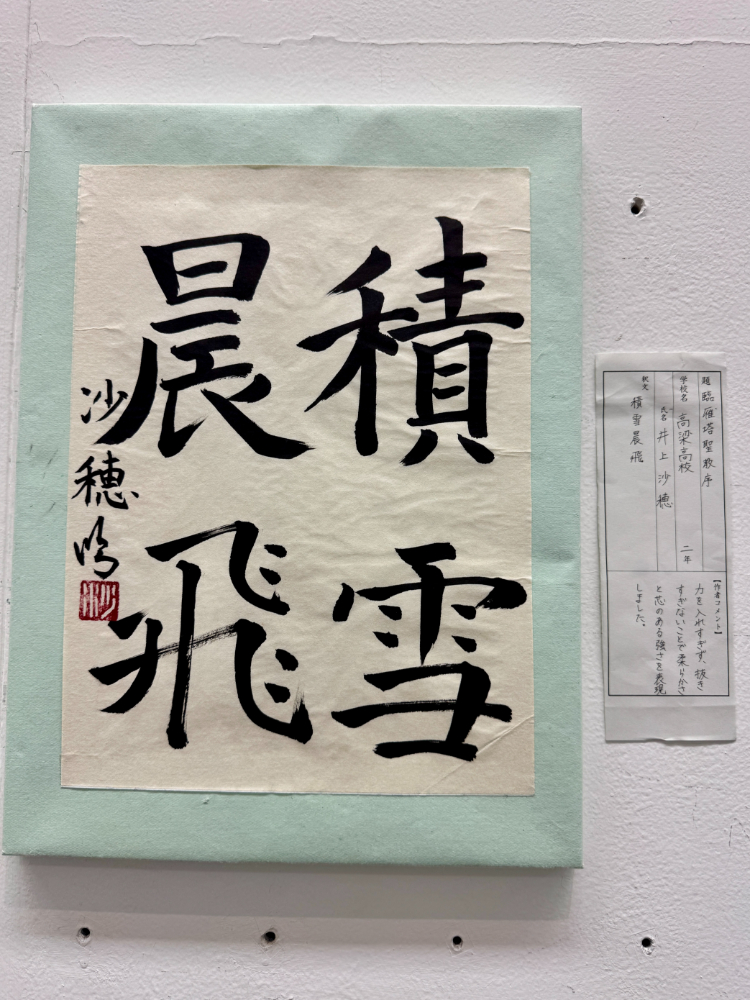 積雪
晨飛
沙穂臨
題 臨雁塔聖教序
学校名 高梁高校 二年
氏名 井上沙穂
釈文 積雪晨飛
【作者コメント】
力を入れすぎず、抜き
すぎないことで柔らかさ
と芯のある強さを表現
しました。